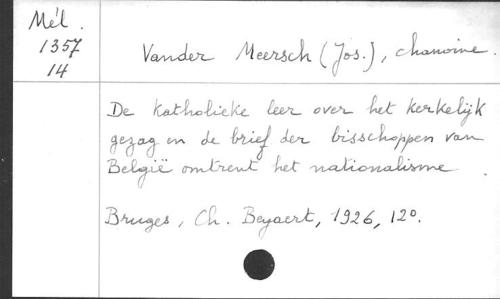 Mél.
1357
14
Vander Meersch (Jos.), chanoine.
De Katholieke leer over het kerkelijk
gezag en de brief der bisschoppen van
België omtrent het nationalisme.
Bruges, Ch. Beyaert, 1926, 12°.